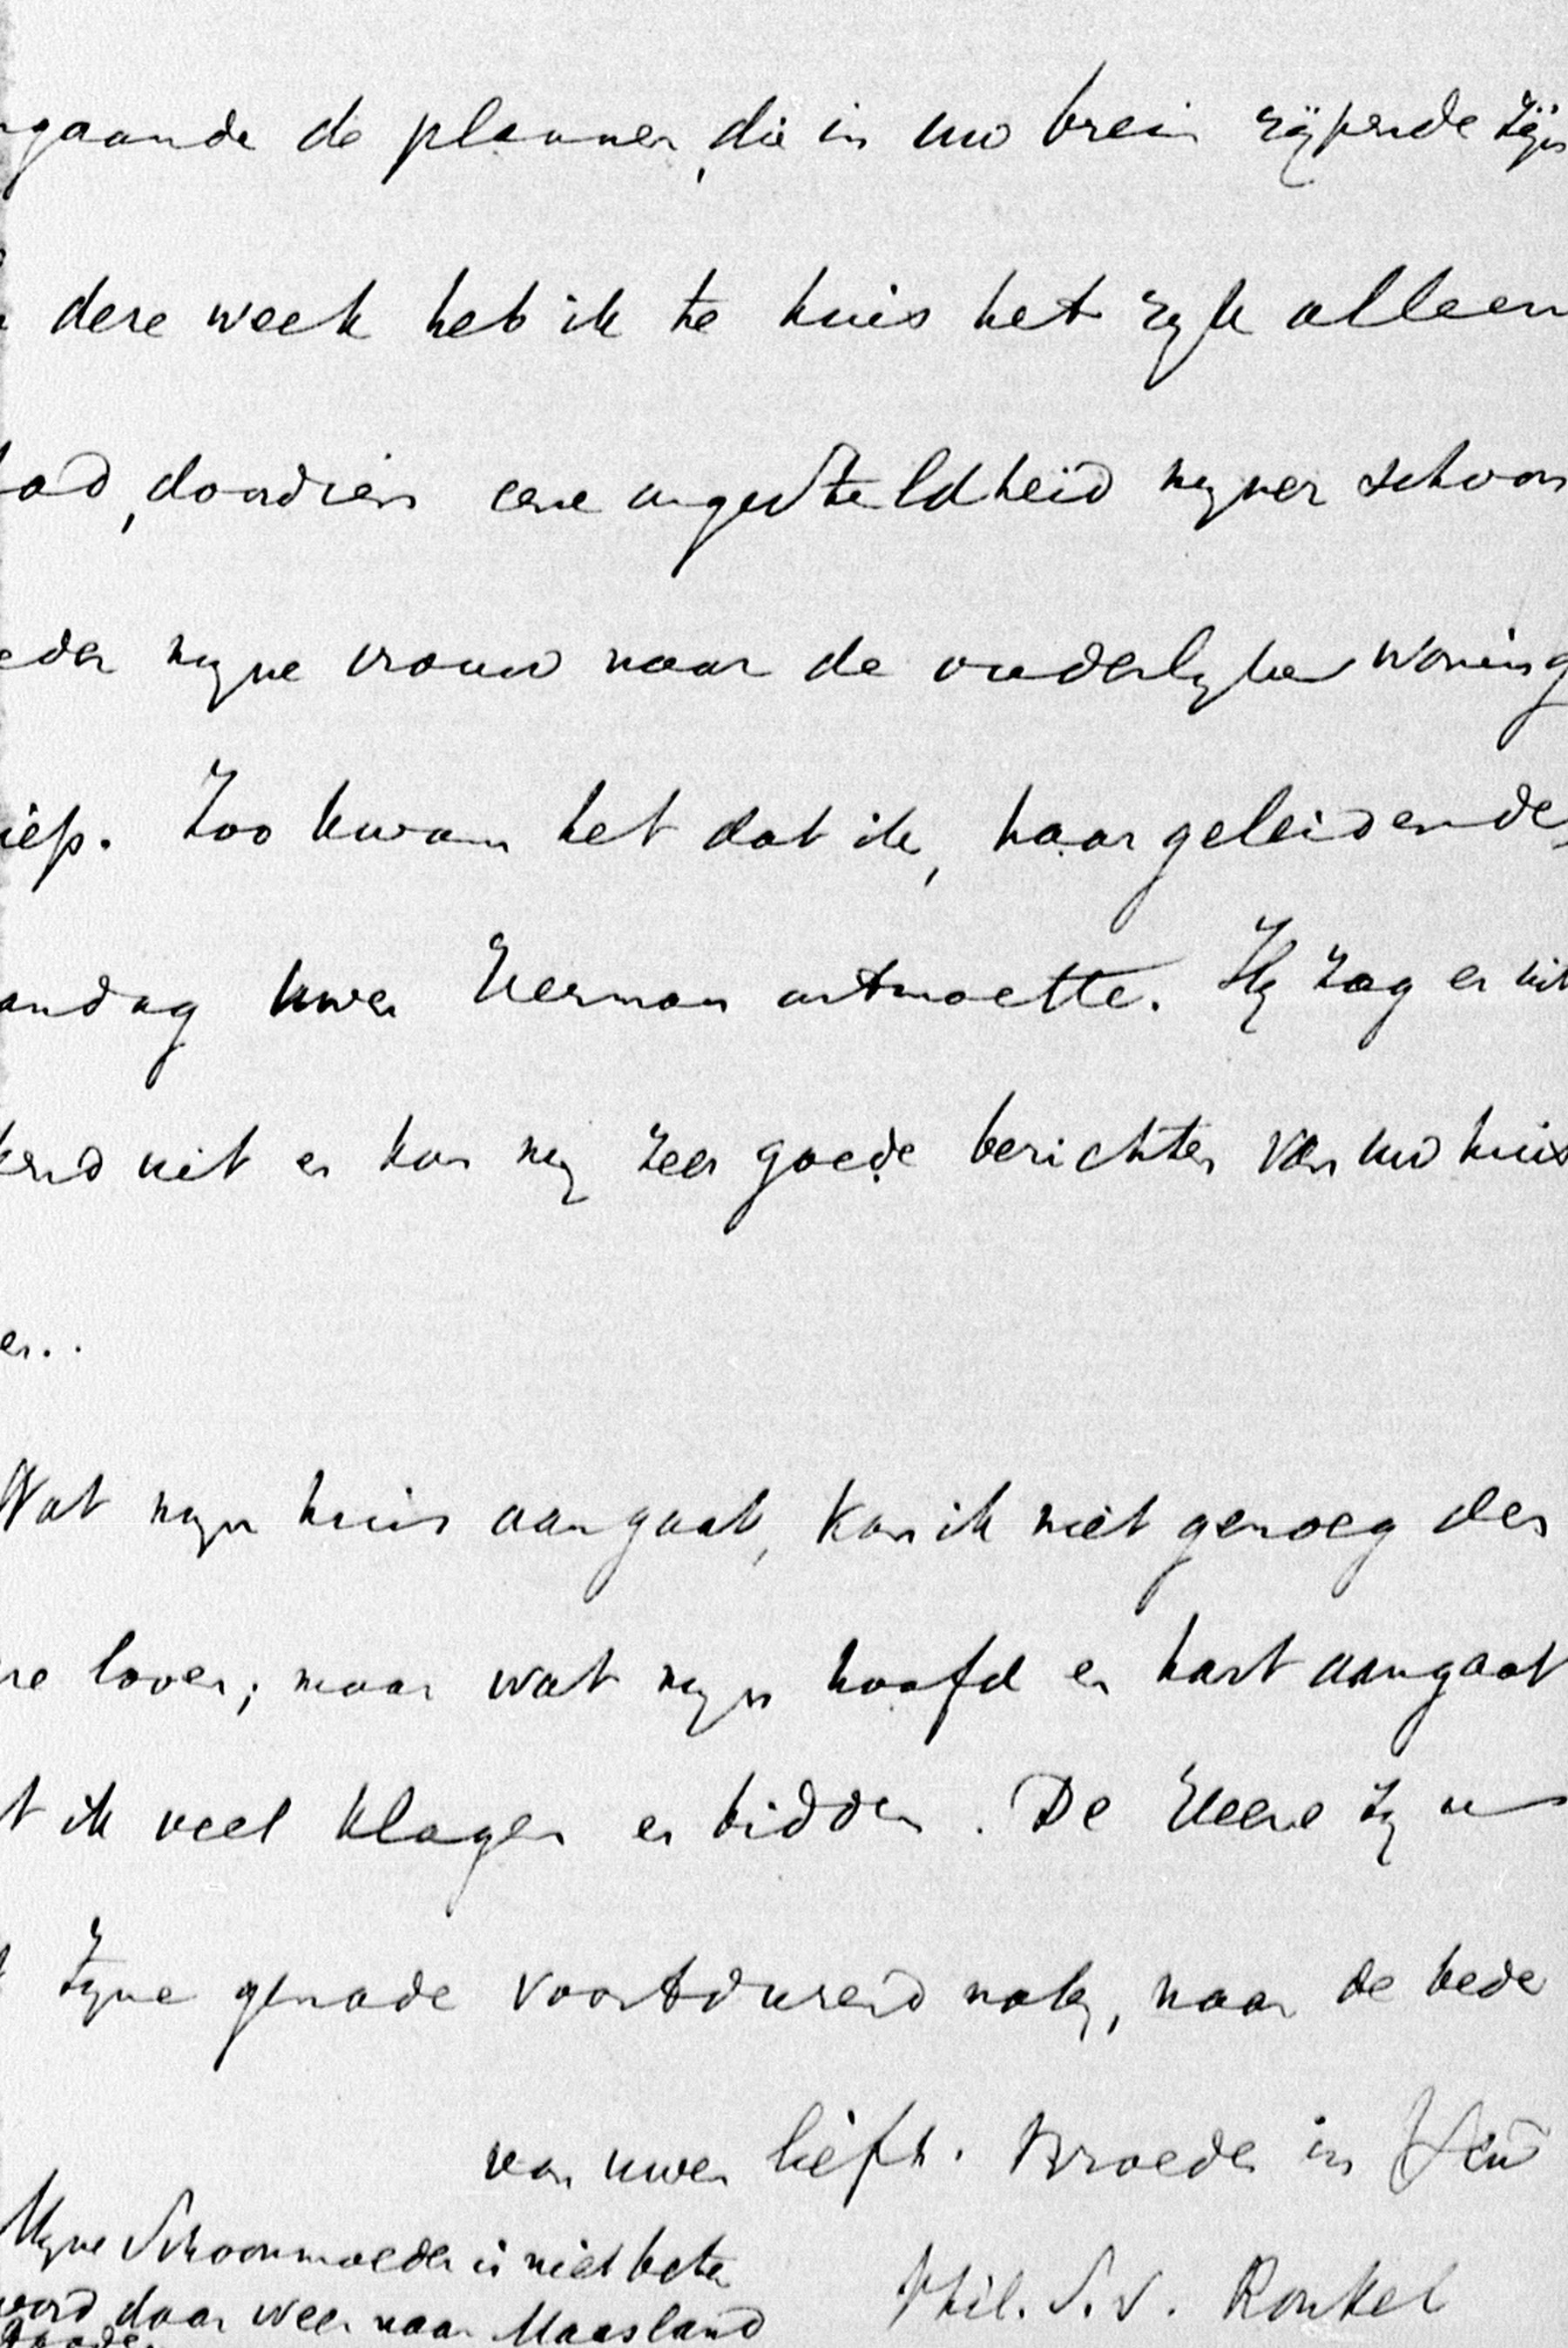 gaande de plannen, die in uw brein rijpende zijn
deze week heb ik te huis het rijk alleen
had, doordien eene ongesteldheid mijner schoon
eder mijne vrouw naar de ouderlijke woning
iep. Zoo kwam het dat ik, haar geleidende,
andag uwen Herman ontmoette. Hij zag er uit
kend uit en kon mij zeer goede berichten van uw huis
en..
Wat mijn huis aangaat, kan ik niet genoeg den
re loven; maar wat mijn hoofd en hart aangaat
t ik veel klagen en bidden. De Heere zij u
Zijne genade voortdurend nabij, naar de bede
van uwen liefh. Broeder in
Phil. S. v. Ronkel
Mijne Schoonmoeder is niet beter
word daar weer naar Maasland